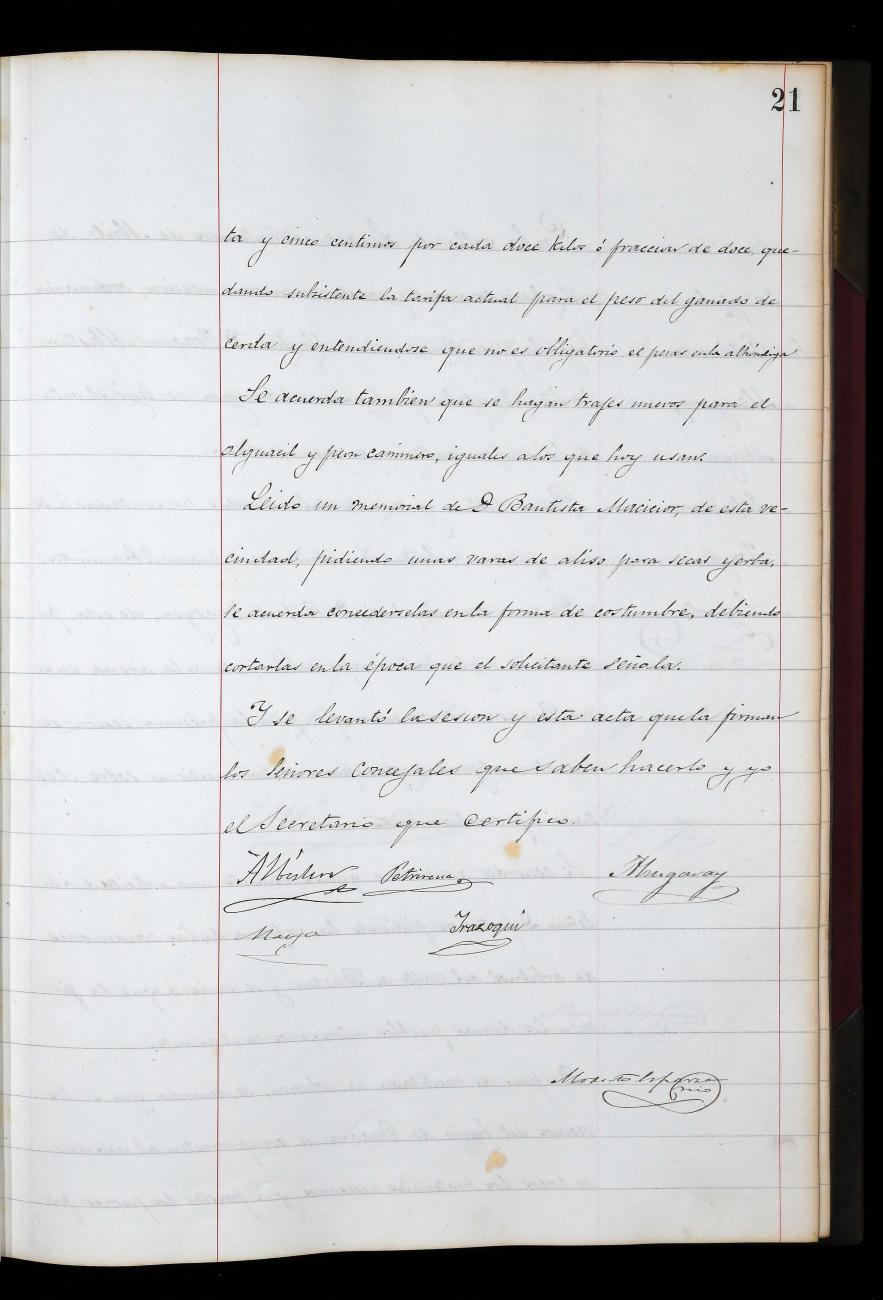 21
ta y cinco centimos por cada doce kilos ó fraccion de doce, que-
dando subsistente la tarifa actual para el peso del ganado de
cerda y entendiendose que no es obligatorio el pesar en la alhóndiga
Se acuerda tambien que se hagan trajes nuevos para el
alguacil y peon caminero, iguales a los que hoy usan.
Leido un memorial de D Bautista Macicior, de esta ve-
cindad, pidiendo unas varas de aliso para secar yerba,
se acuerda concederselas en la forma de costumbre, debiendo
cortarlas en la época que el solicitante señala.
Y se levantó la sesion y esta acta que la firman
los Señores Concejales que saben hacerlo y yo
el Secretario que certifico.
Albistur Petrirena
Maya Irazoqui
Modesto Esparza